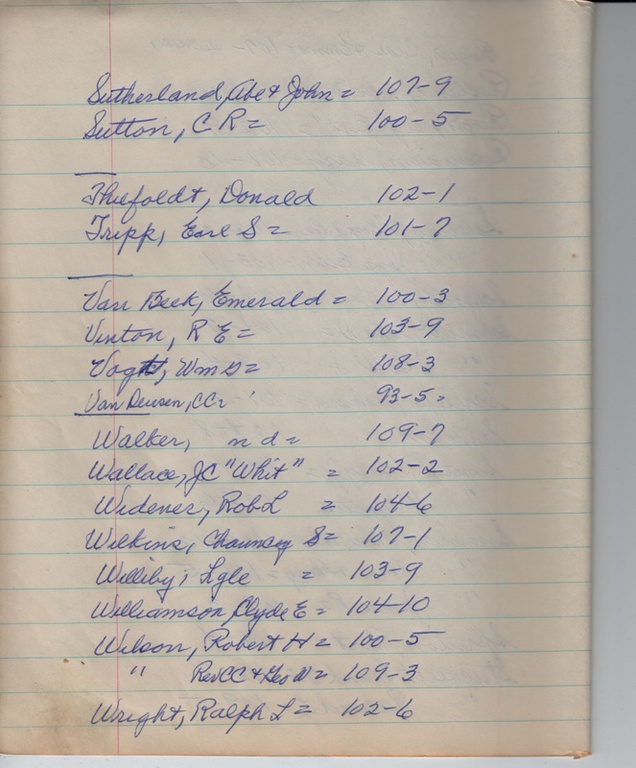 Sutherland, Abe + John = 107-9
Sutton, C R = 100-5
Thiefoldt, Donald 102-1
Tripp, Earl S = 101-7
Van Beek, Emerald = 100-3
Vinton, R E = 103-9
Vogt, Wm D = 108-3
Van Deusen, CC 93-5
Walker, n d = 109-7
Wallace, JC "Whit" = 102-2
Widener, Rob L = 104-6
Wilkins, Chauncey S = 107-1
Williby, Lyle = 103-9
Williamson, Clyde E = 104-10
Wilson, Robert H = 100-5
" Rev CC + Geo N = 109-3
Wright, Ralph L = 102-6